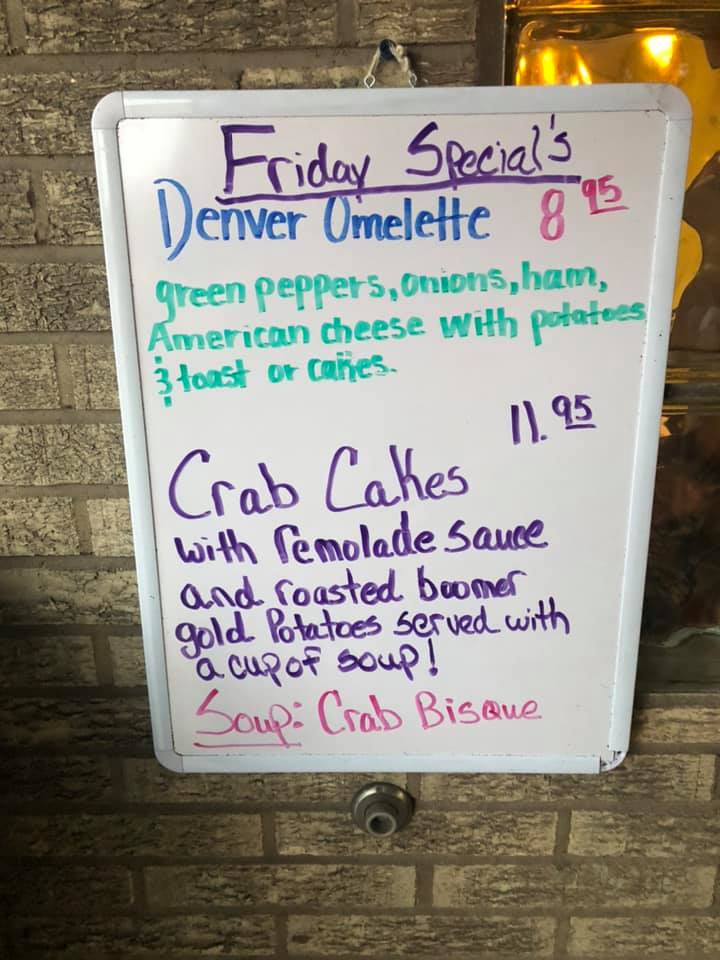 Friday Special's
Denver Omelette 8 95
green peppers, onions, ham,
American cheese with potatoes
& toast or cakes.
11.95
Crab Cakes
with remolade sauce
and roasted boomer
gold Potatoes served with
a cup of soup!
Soup: Crab Bisque